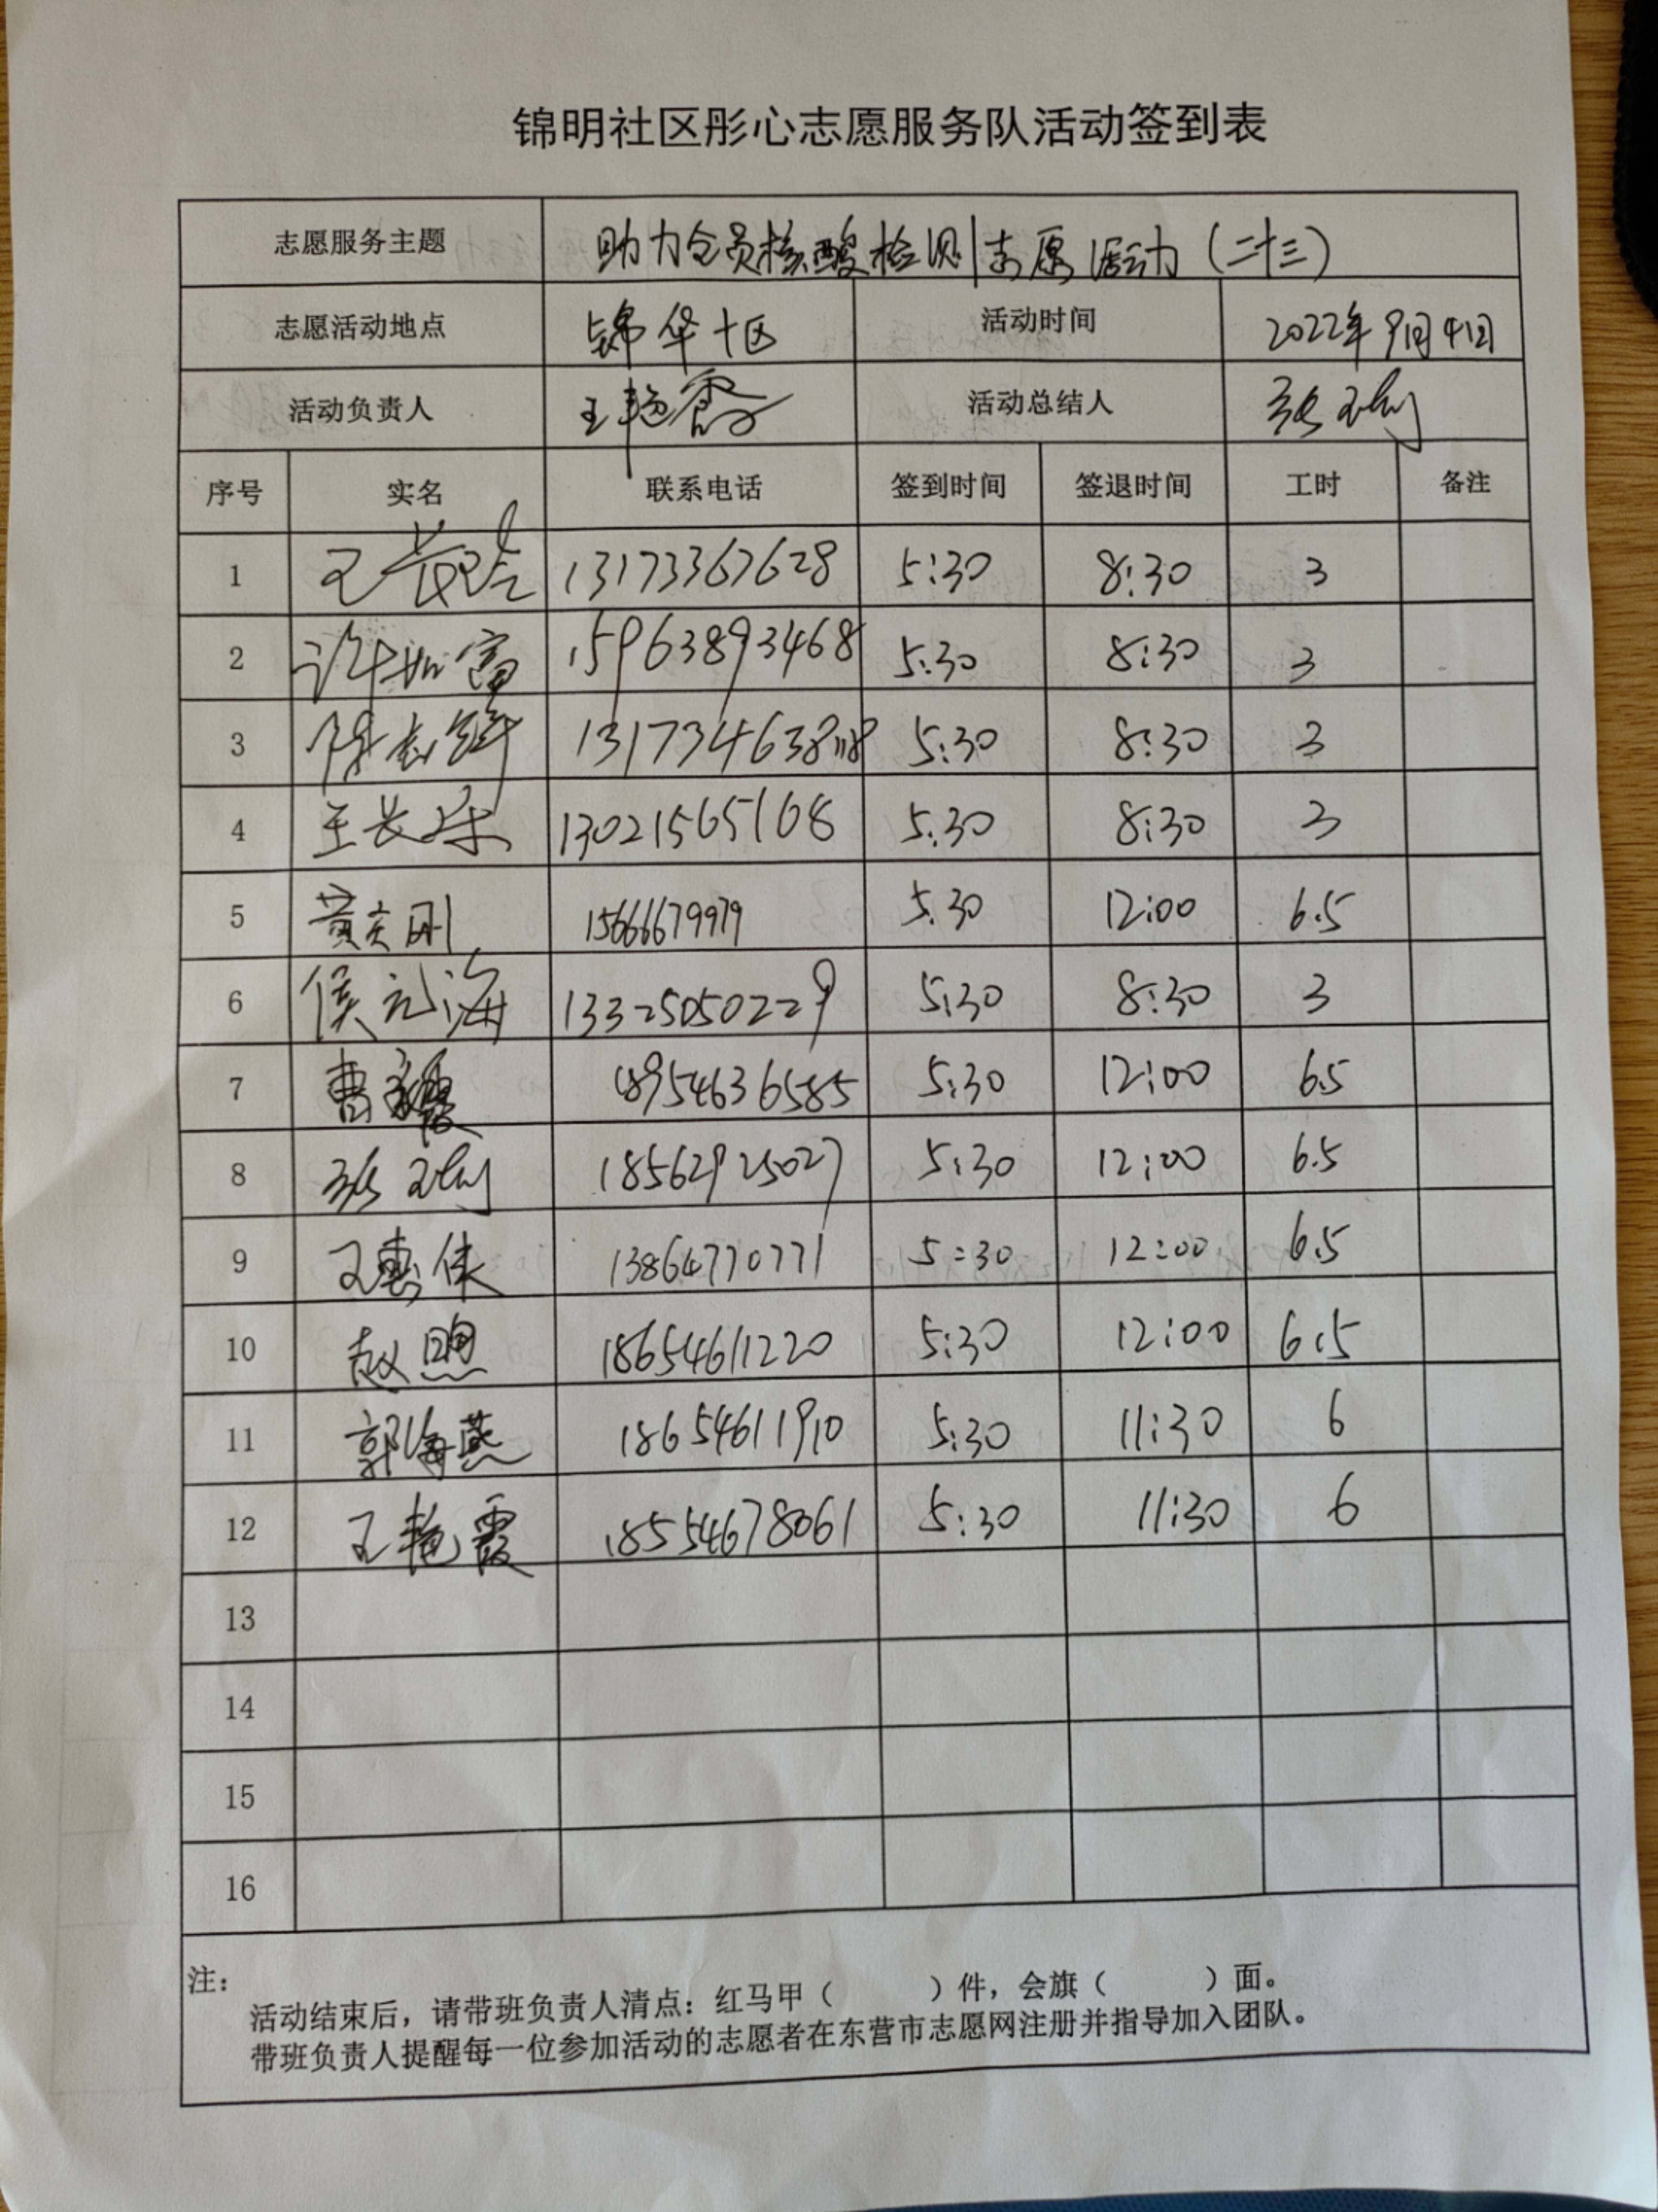 锦明社区彤心志愿服务队活动签到表
志愿服务主题 助力全员核酸检测志愿活动(二十三)
志愿活动地点 锦华十区 活动时间 2022年9月4日
活动负责人 王艳霞 活动总结人 张
序号 实名 联系电话 签到时间 签退时间 工时 备注
1 王 13173367628 5:30 8:30 3
2 许如富 15963893468 5:30 8:30 3
3 5:30 8:30 3
4 王长乐 13021565168 5:30 8:30 3
5 黄庆刚 15666679979 5:30 12:00 6.5
6 侯元海 13325050229 5:30 8:30 3
7 曹 18954636585 5:30 12:00 6.5
8 张 18562925027 5:30 12:00 6.5
9 王惠侠 13864770771 5:30 12:00 6.5
10 赵照 18654611220 5:30 12:00 6.5
11 郭海燕 18654611910 5:30 11:30 6
12 王艳霞 18554678061 5:30 11:30 6
13
14
15
16
注:
活动结束后,请带班负责人清点:红马甲( )件,会旗( )面。
带班负责人提醒每一位参加活动的志愿者在东营市志愿网注册并指导加入团队。